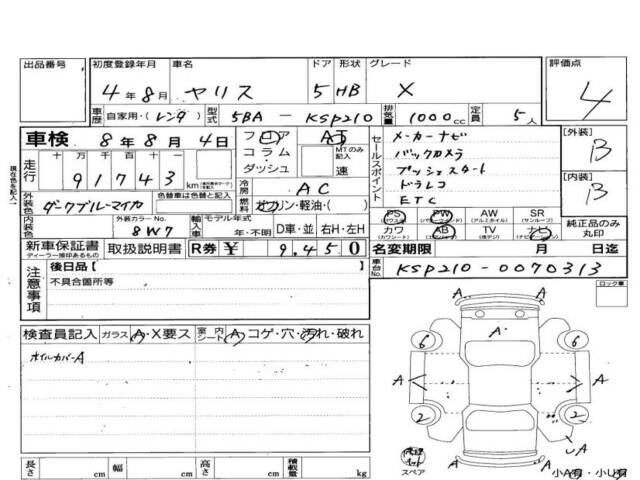 出品番号 初度登録年月 車名 ドア 形状 グレード 評価点
4年8月 ヤリス 5 HB X 4
車歴 自家用・(レンタ) 型式 5BA - KSP210 排気量 1000cc 定員 5人
車検 8年8月4日 フロア コラム・ダッシュ AT MTのみ記入 速
セールスポイント
メーカーナビ
バックカメラ
プッシュスタート
ドラレコ
ETC
[外装] B
[内装] B
走行 十 万 千 百 十 一
91743 km
冷房 AC
外装色 ダークブルーマイカ 色替車は色替と記入
燃料 ガソリン・軽油・( )
内装色 外装カラーNo. 8W7 輸入車 モデル年式 年・不明 D車・並 右H・左H
PS PW AW SR
(パワステ) (パワーウィンド) (アルミホイル) (サンルーフ)
カワ AB TV ナビ
(カワシート) (エアバッグ) (地デジ) (ナビ)
純正品のみ丸印
新車保証書 ディーラー捺印あるもの 取扱説明書 R券 ¥ 9,450
名変期限 月 日迄
注意事項 後日品 [ ]
不具合箇所等
車台No. KSP210-0070313
ロック車
検査員記入 ガラス A・X要ス 室内シート A コゲ・穴・汚れ・破れ
ホイルカバーA
A A A
6 6
A A
2 2
A A U A
修理キット
スペア
小A有・小U有
長さ cm 幅 cm 高さ cm 積載量 kg
現在色を記入